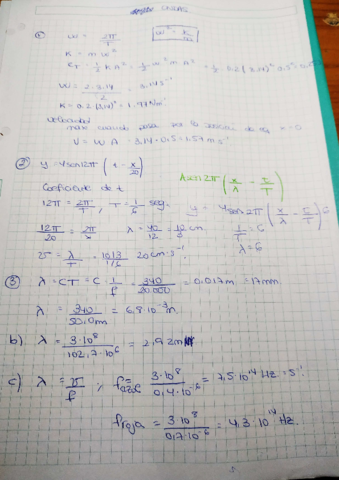 ONDAS
① W = 2π/T   W² = K/m
K = m w²
E_T = 1/2 K A² = 1/2 w² m A² = 1/2 0.2 (3.14)² 0.5²
W = 2·3.14/2 = 3.14 s⁻¹
K = 0.2 (3.14)² = 1.97 N/m
Velocidad
max cuando pasa por la posición de eq. x = 0
V = W A = 3.14·0.5 = 1.57 m s⁻¹
② y = 4 sen 12π (t - x/20)
A sen 2π (x/λ - t/T)
Coeficiente de t
12π = 2π/T, T = 1/6 seg.
y = 4 sen 2π (x/λ - t/T)
12π/20 = 2π/λ   λ = 40/12 = 10/3 cm.
1/T = 6
λ = 6
v = λ/T = 10/3/1/6 20 cm·s⁻¹
③ λ = CT = C · 1/f = 340/20.000 = 0.017 m = 17 mm.
b) λ = 3·10⁸/102,7·10⁶ = 2,92 m
c) λ = v/f, f azul 3·10⁸/0,4·10⁻⁶ = 7,5·10¹⁴ Hz = s⁻¹.
f roja = 3·10⁸/0,7·10⁻⁶ = 4,3·10¹⁴ Hz.